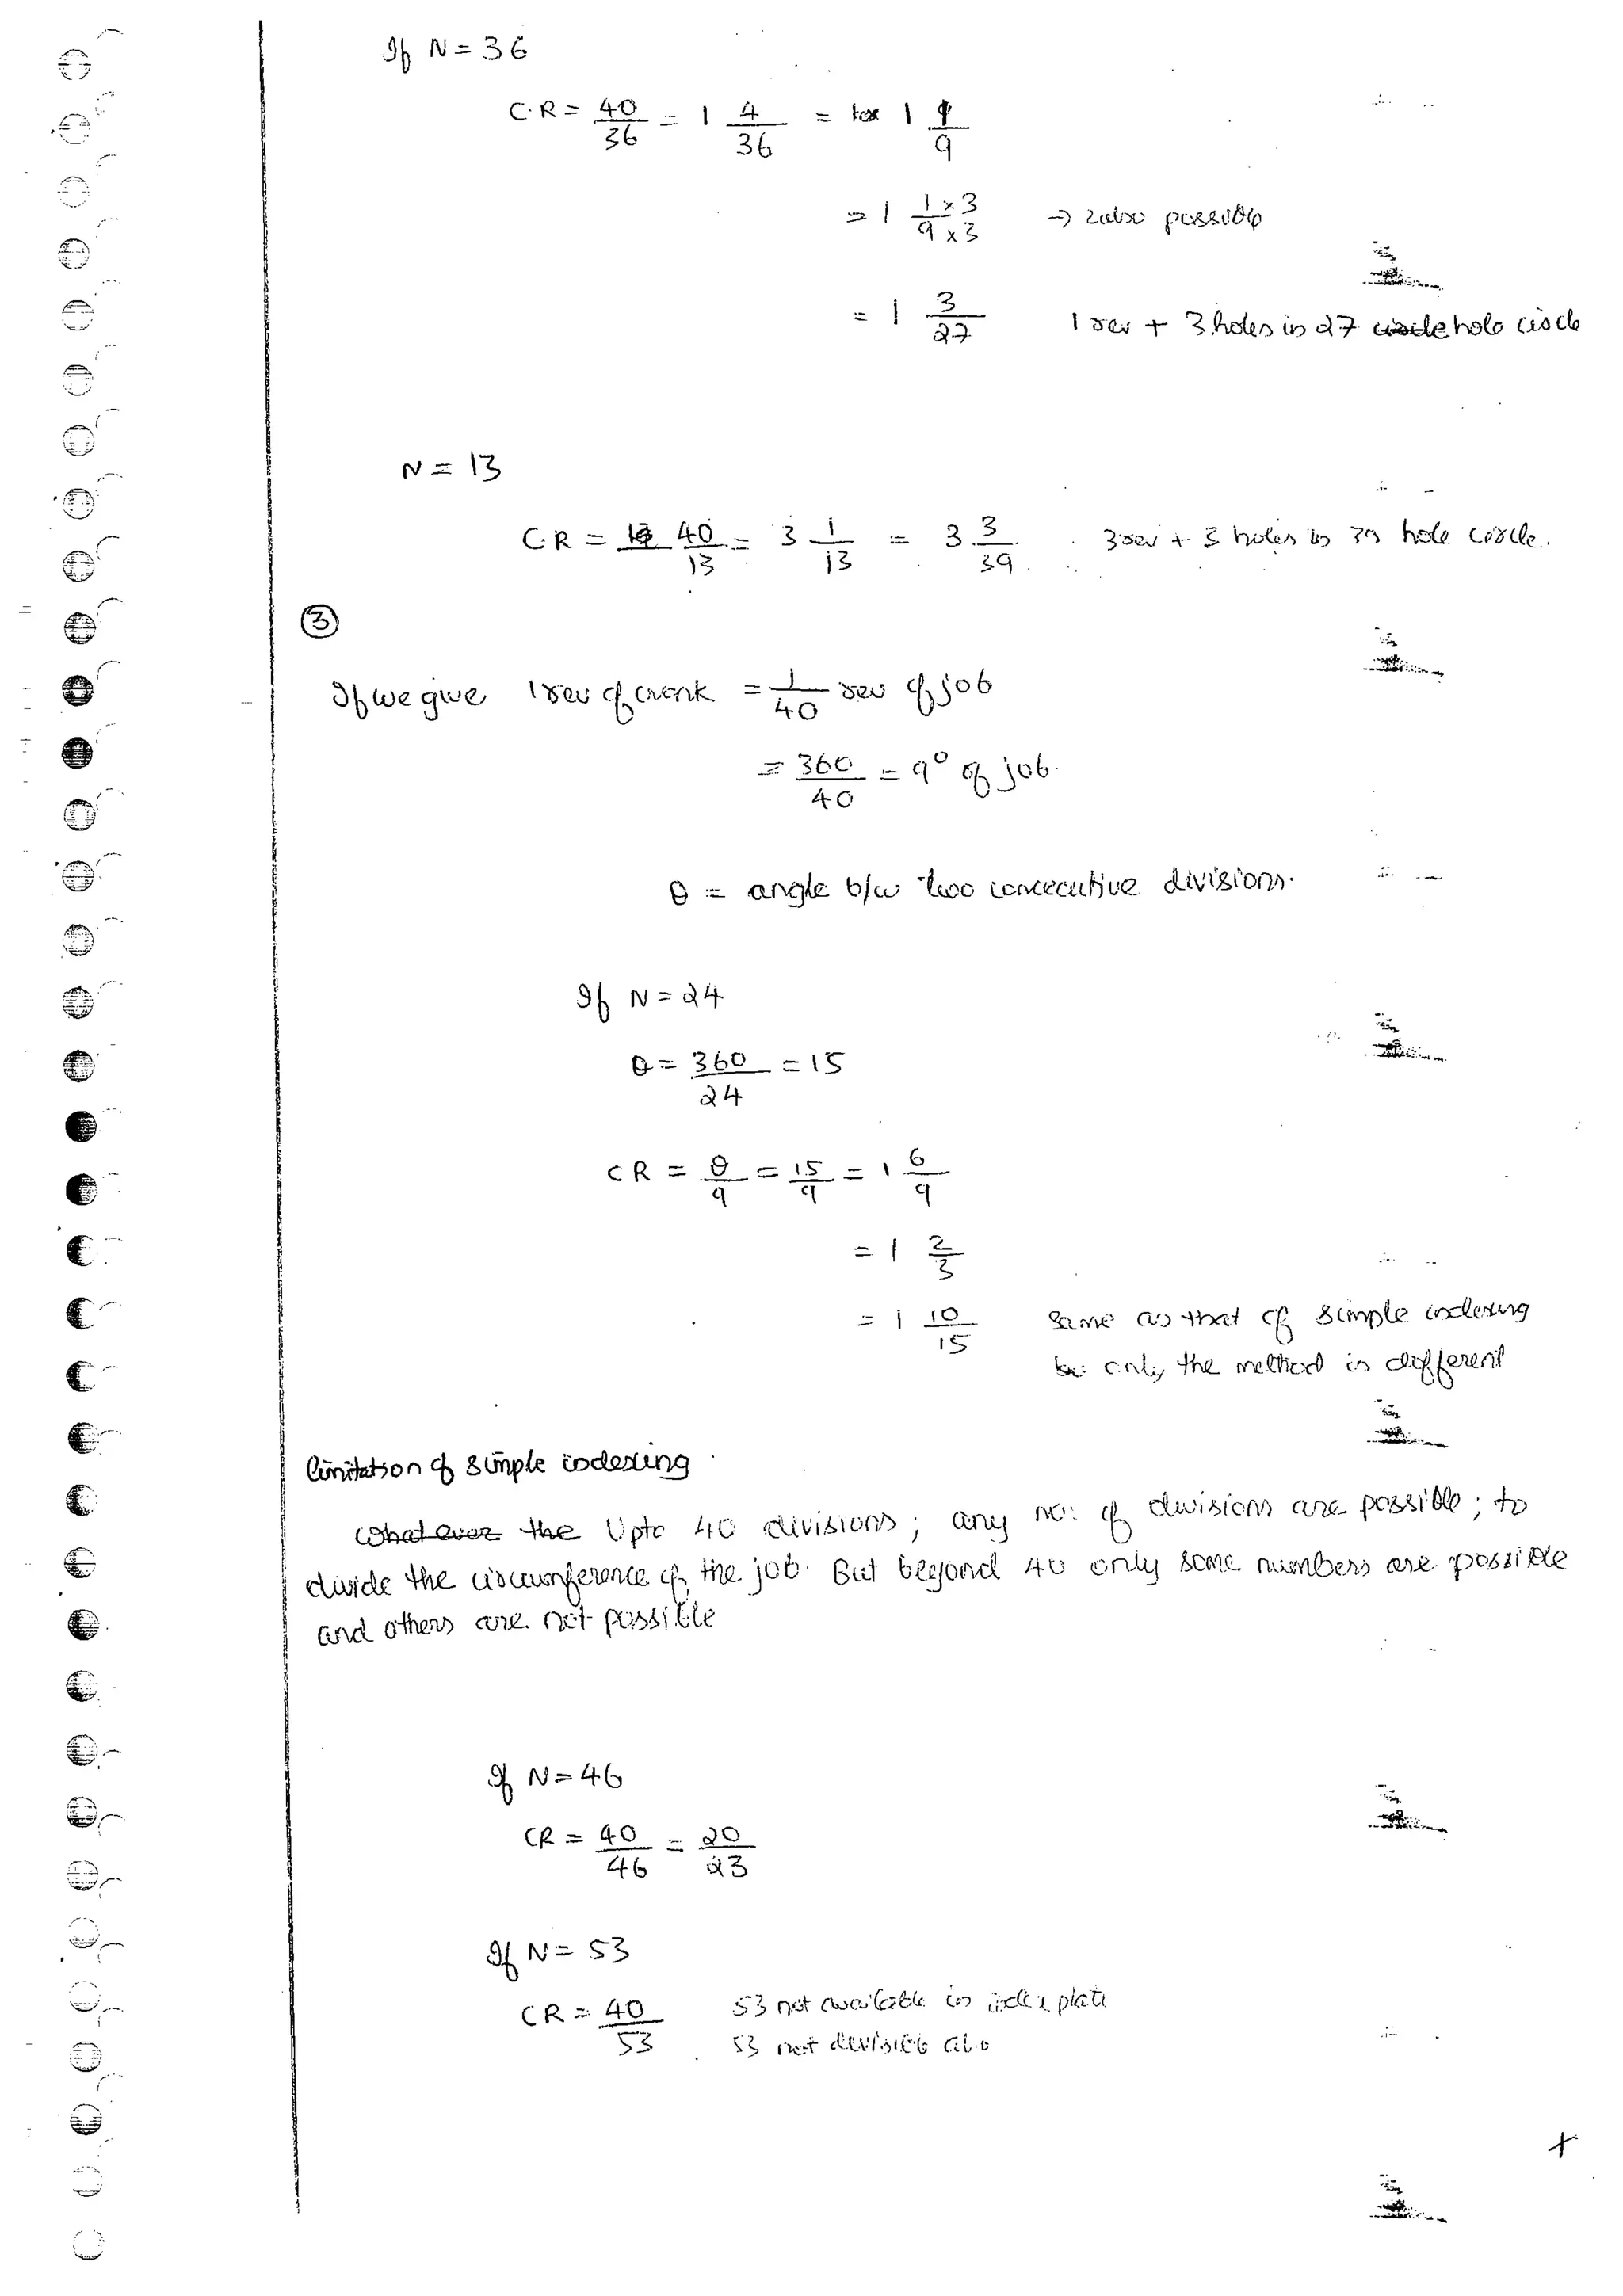 If N = 36
C.R = 40/36 = 1 4/36 = 1 1/9
= 1 1×3/9×3 → 2 also possible
= 1 3/27 1 rev + 3 holes in 27 circle hole circle
N = 13
C.R = 40/13 = 3 1/13 = 3 3/39 3 rev + 3 holes in 39 hole circle.
③
If we give 1 rev of crank = 1/40 rev of job
= 360/40 = 9° of job.
θ = angle b/w two concecutive divisions.
If N = 24
θ = 360/24 = 15
CR = θ/9 = 15/9 = 1 6/9
= 1 2/3
= 1 10/15 same as that of simple indexing
only the method is different
limitation of simple indexing
What ever the Upto 40 divisions; any no: of divisions are possible; to
divide the circumference of the job. But beyond 40 only some numbers are possible
and others are not possible
If N = 46
CR = 40/46 = 20/23
If N = 53
CR = 40/53 53 not available in index plate
53 not divisible also